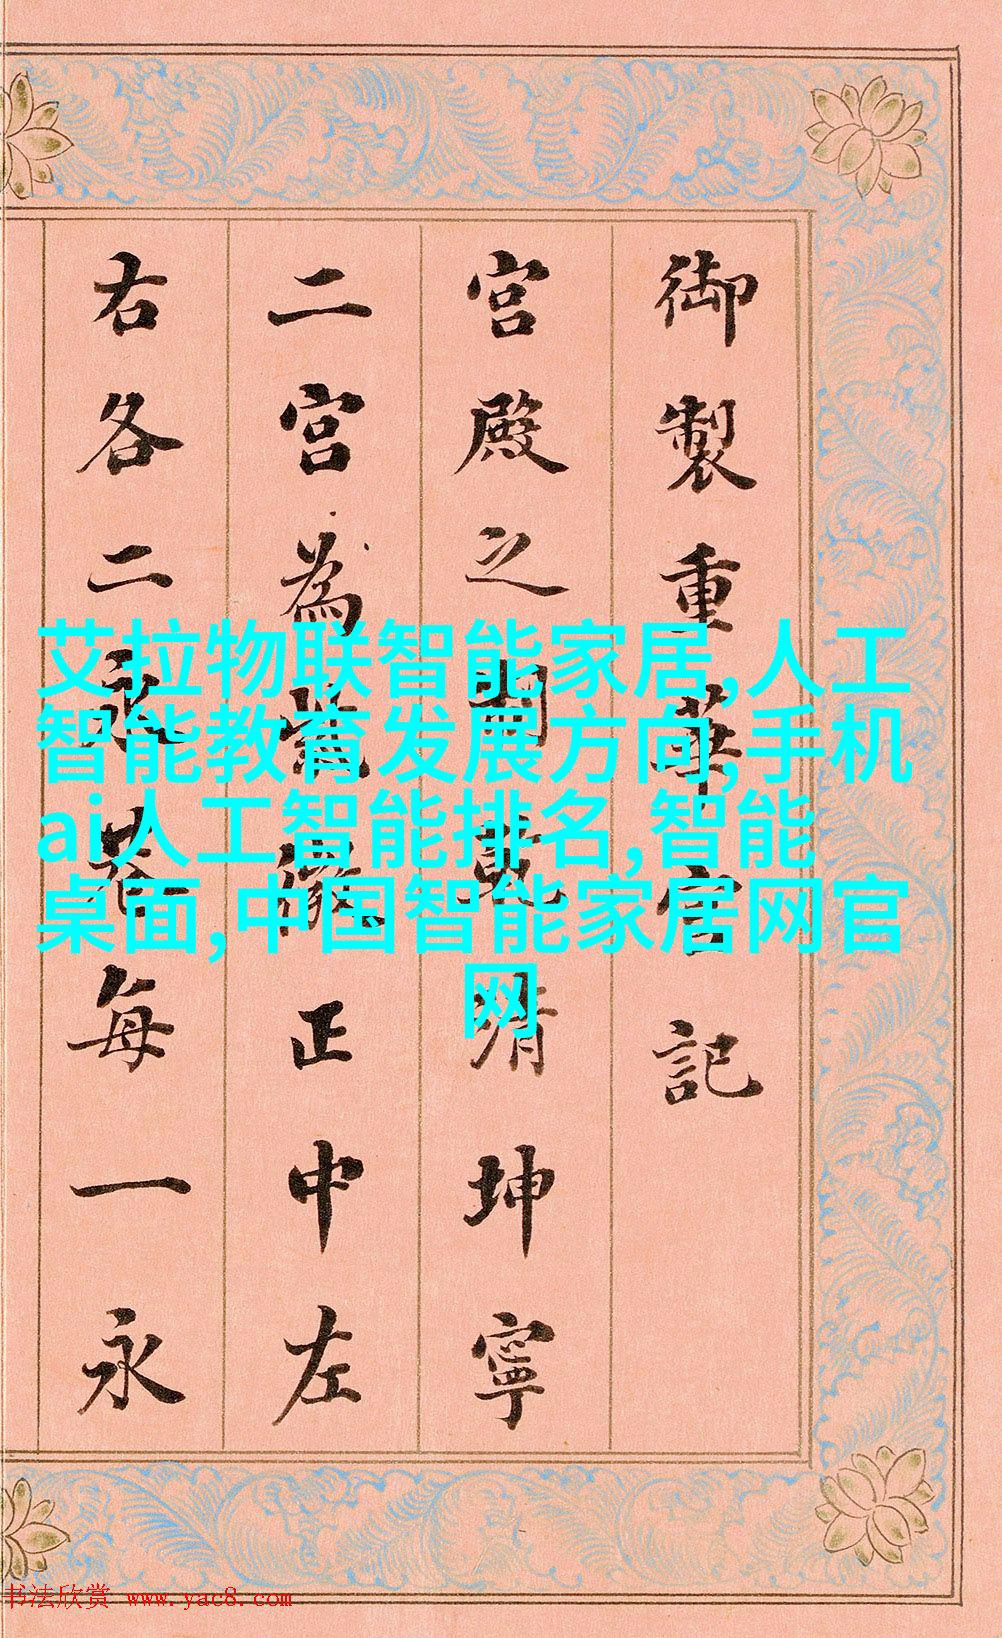 御製重華宮記
宮殿之清坤寧
二宮為正中左
右各二永巷每一永
艾拉物联智能家居,人工
智能教育发展方向,手机
ai人工智能排名,智能
桌面,中国智能家居网官
网
书法欣赏 www.yac8.com